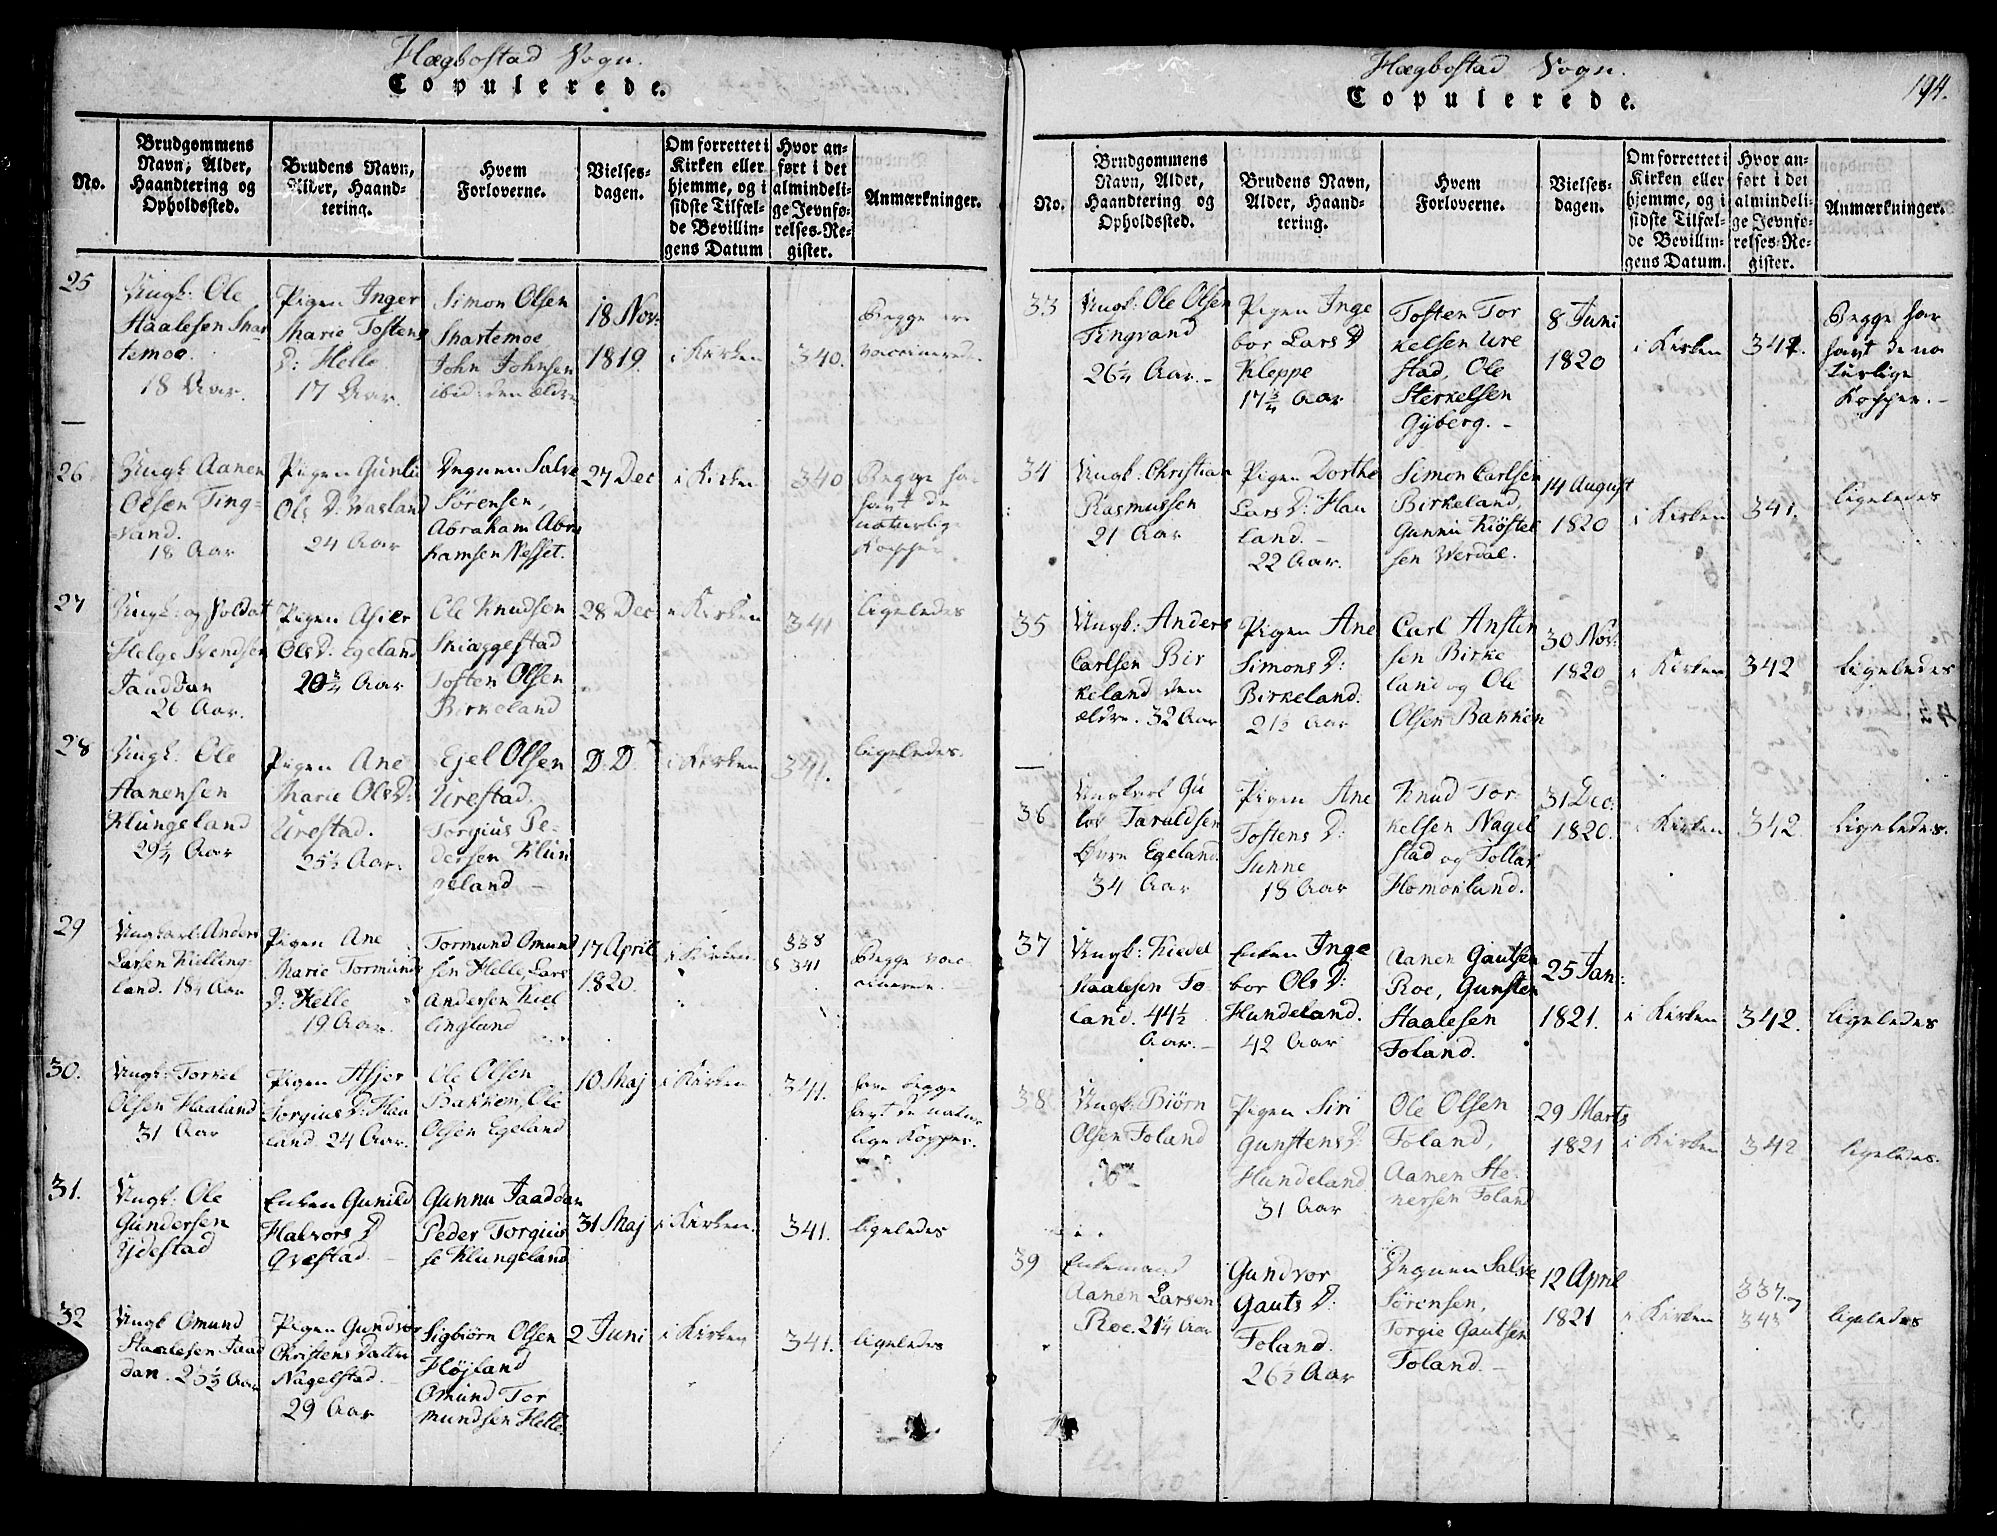 Hægbostad Sogn.
Copulerede.
No.
Brudgommens
Navn, Alder,
Haandtering og
Opholdssted.
Brudens Navn,
Alder, Haand-
tering.
Hvem
Forloverne.
Vielses-
dagen.
Om forrettet i
Kirken eller
hjemme, og i
sidste Tilfæl-
de Bevillin-
gens Datum
Hvor an-
ført i det
almindeli-
ge Jevnfø-
relses-Re-
gister.
Anmærkninger.
25
Ungk: Ole
Staalesen Snar
temoe.
18 Aar.
Pigen Inger
Marie Tostens
D: Helle
17 Aar.
Simon Olsen
Snartemoe
John Johnsen
ibid: den ældre
18 Nov:
1819.
i Kirken
340.
Begge ere
vaccinerede
26
Ungk: Aanen
Olsen Ting-
vand.
18 Aar
Pigen Gunil
Ols D: Vasland
24 Aar
Degnen Salve
Sørensen,
Abraham Abra
hamsen Nesset.
27 Dec
i Kirken
340
Begge ha
havt de
naturlig
Kopper.
27
Ungk: og Soldat
Helge Svendsen
Taaddan
26 Aar.
Pigen Asier
Ols D: Egeland
20¾ Aar
Ole Knudsen
Skiæggestad
Tosten Olsen
Birkeland
28 Dec
i Kirken
341
ligeledes
28
Ungk: Ole
Aanensen
Klungeland
29¼ Aar
Pigen Ane
Marie Ols D:
Urestad.
25½ Aar.
Ejel Olsen
Urestad.
Torgius Pe-
dersen Klun
geland
D. D.
i Kirken
341.
ligeledes.
29
Ungkarl: Anders
Larsen Kielling-
land. 18¼ Aar
Pigen Ane
Marie Tormunds
D: Helle
19 Aar.
Tormund Omund
sen Helle, Lars
Andersen Kiel
lingland
17 April
1820.
i Kirken
338
& 341
Begge vac-
cinerede.
30.
Ungk: Torkel
Olsen Haaland
31 Aar
Pigen Assjer
Torgius D: Haa
land. 24 Aar.
Ole Olsen
Bakken, Ole
Olsen Egeland
10 Maj
i Kirken
341.
have begge
havt de natur
lige Kopper.
31.
Ungk: Ole
Gundersen
Ydestad
Enken Gunild
Halvors D
Qvæstad.
Gunnu Taaddan
Peder Torgius
se Klungeland
31 Maj
i Kirken.
341.
ligeledes
32
Ungk Omund
Staalesen Taad
dan. 23½ Aar
Pigen Gundvor
Christens Datter
Nagelstad.
29 Aar
Sigbiørn Olsen
Højland
Omund Tor
mundsen Helle.
2 Juni
i Kirken
341.
ligeledes
Hægbostad Sogn.
194.
Copulerede.
No.
Brudgommens
Navn, Alder,
Haandtering og
Opholdssted.
Brudens Navn,
Alder, Haand-
tering.
Hvem
Forloverne.
Vielses-
dagen.
Om forrettet i
Kirken eller
hjemme, og i
sidste Tilfæl-
de Bevillin-
gens Datum.
Hvor an-
ført i det
almindeli-
ge Jevnfø-
relses-Re-
gister.
Anmærkninger.
33
Ungk: Ole Olsen
Tingvand
26¼ Aar.
Pigen Inge
bor Lars D
Kleppe
17¾ Aar
Tosten Tor
kelsen Ure
stad, Ole
Sterkelsen
Gyberg.
8 Juni
1820
i Kirken
341.
Begge har
havt de na
turlige
Kopper.
34
Ungk: Christian
Rasmussen
21 Aar
Pigen Dorthe
Lars D: Hau
land.
22 Aar.
Simon Carlsen
Birkeland,
Gunnu Kiøstel
sen Werdal.
14 August
1820
i Kirken
341.
ligeledes
35
Ungk: Anders
Carlsen Bir
keland den
ældre. 32 Aar
Pigen Ane
Simons D:
Birkeland.
21½ Aar
Carl Ansten
sen Birke
land og Ole
Olsen Bakken
30 Nov:
1820
i Kirken
342
ligeledes
36
Ungkarl Gu
lov Taraldsen
Øvre Egeland.
34 Aar
Pigen Ane
Tostens D:
Sunne
18 Aar
Knud Tor-
kelsen Nagel
stad og Tollak
Homonland.
31 Dec:
1820.
i Kirken
342.
ligeledes.
37
Ungk: Kiedel
Staalesen Fo
land. 44½
Aar.
Enken Inge
bor Ols D:
Hundeland.
42 Aar
Aanen Gautsen
Roe, Gunsten
Staalesen
Foland.
25 Jan:
1821.
i Kirken
342.
ligeledes
38
Ungk: Biørn
Olsen Foland
Pigen Siri
Gunstens D:
Hundeland
31 Aar
Ole Olsen
Foland,
Aanen Ste-
nersen Foland
29 Marts
1821
i Kirken
342
ligeledes.
39
Enkemand
Aanen Larsen
Roe. 21¼ Aar
Gundvor
Gauts D:
Foland.
26½ Aar
Degnen Salve
Sørensen,
Torgie Gautsen
Foland.
12 April
1821
i Kirken
337. og
343
ligeledes